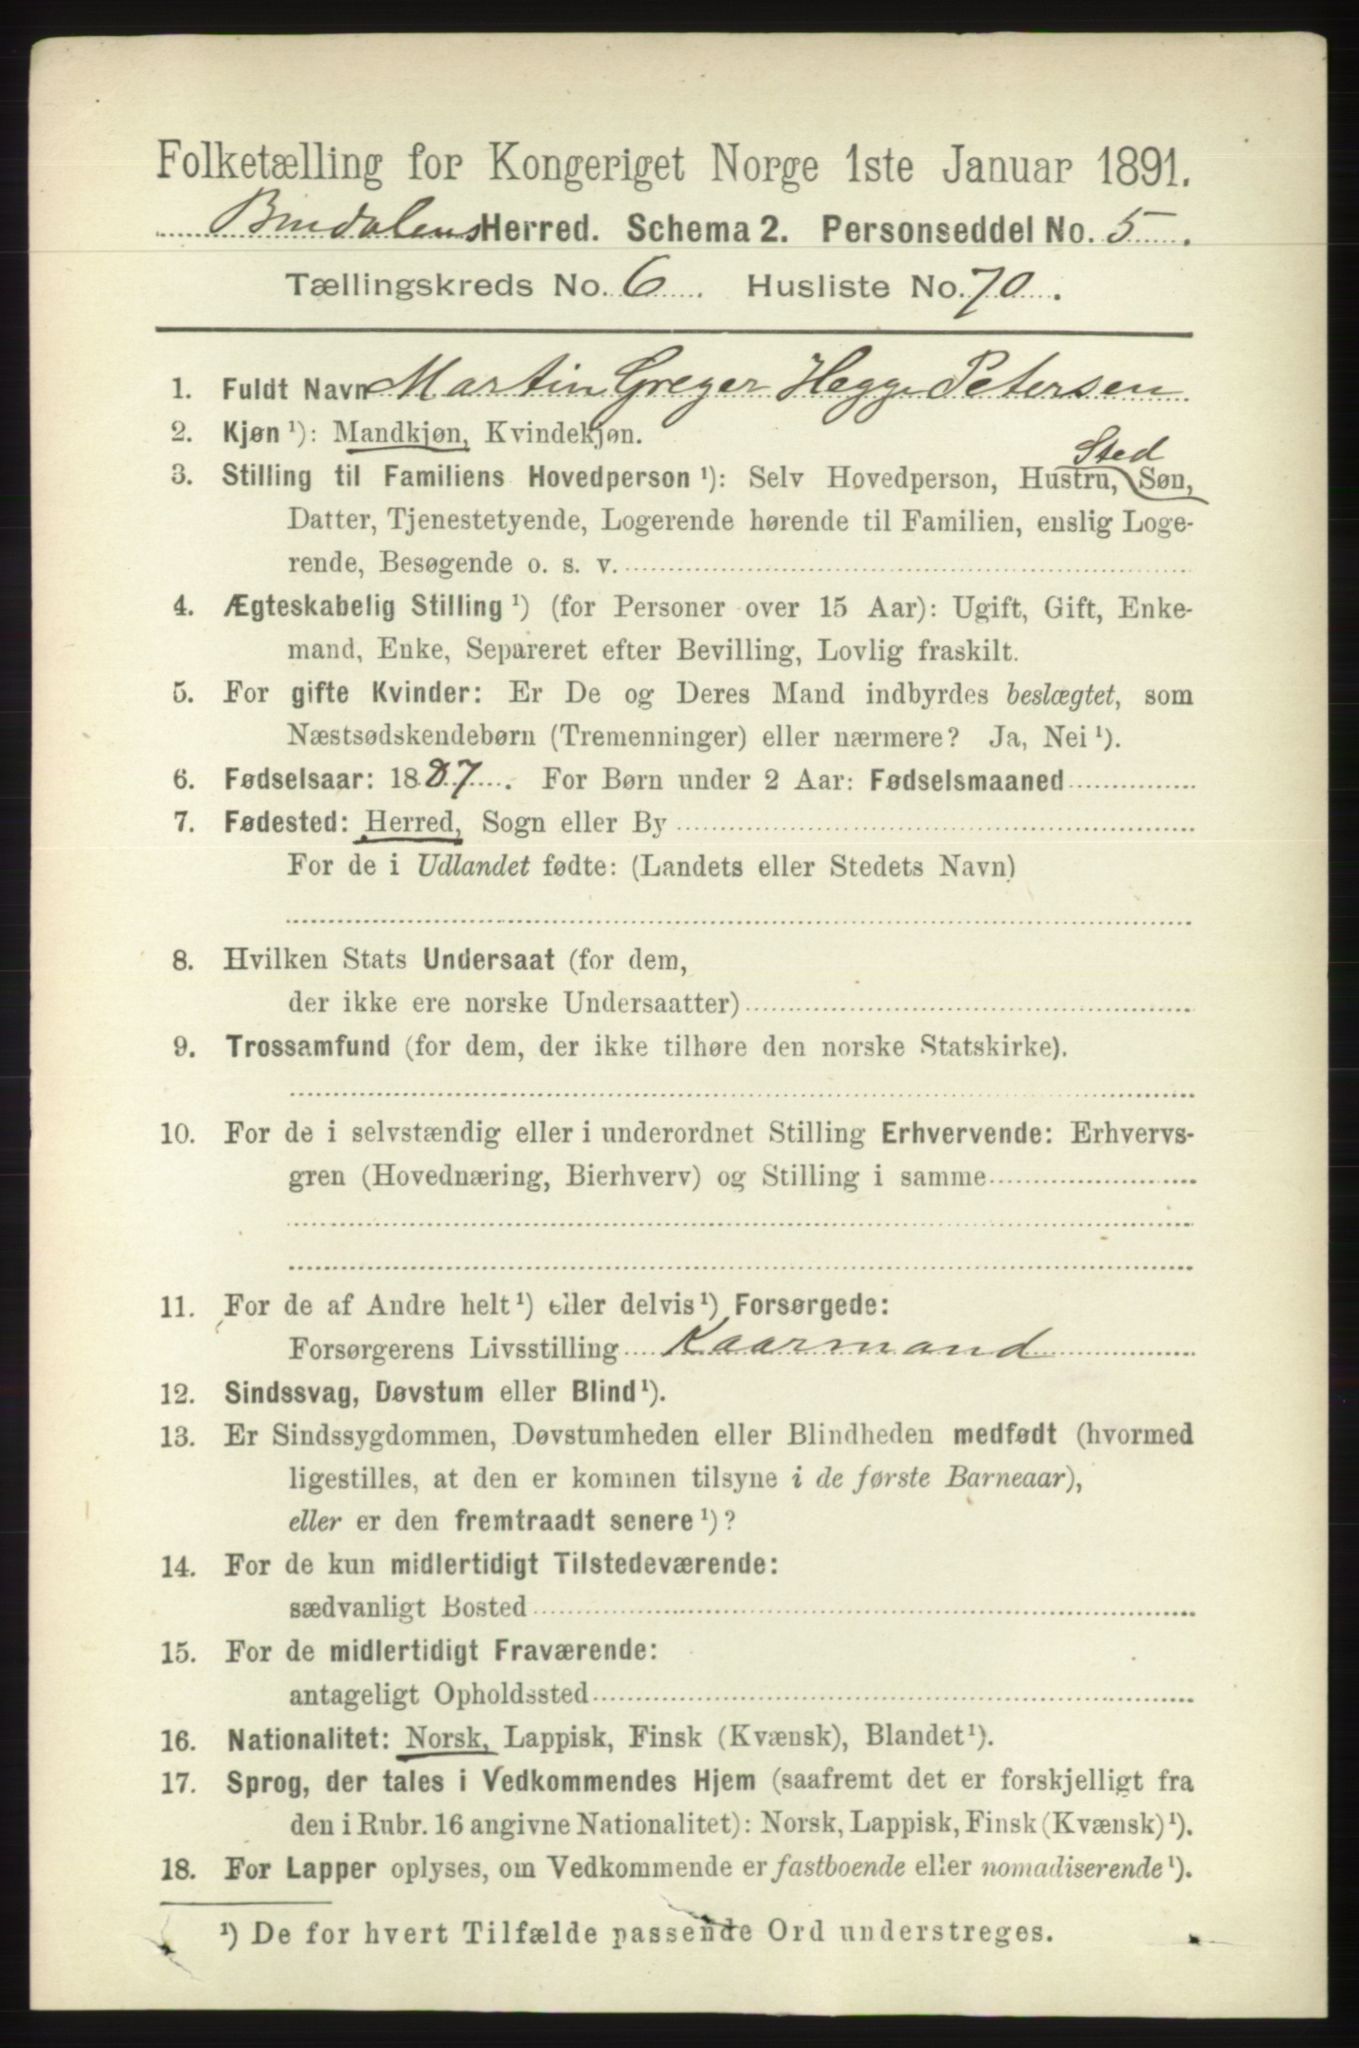 Folketælling for Kongeriget Norge 1ste Januar 1891.
Bindalens Herred. Schema 2. Personseddel No. 5.
Tællingskreds No. 6. Husliste No. 70.
1. Fuldt Navn Martin Greger Hegge Petersen
2. Kjøn ¹): Mandkjøn, Kvindekjøn.
Sted
3. Stilling til Familiens Hovedperson ¹): Selv Hovedperson, Hustru, Søn,
Datter, Tjenestetyende, Logerende hørende til Familien, enslig Loge-
rende, Besøgende o. s. v.
4. Ægteskabelig Stilling ¹) (for Personer over 15 Aar): Ugift, Gift, Enke-
mand, Enke, Separeret efter Bevilling, Lovlig fraskilt.
5. For gifte Kvinder: Er De og Deres Mand indbyrdes beslægtet, som
Næstsødskendebørn (Tremenninger) eller nærmere? Ja, Nei ¹).
6. Fødselsaar: 1887. For Børn under 2 Aar: Fødselsmaaned
7. Fødested: Herred, Sogn eller By
For de i Udlandet fødte: (Landets eller Stedets Navn)
8. Hvilken Stats Undersaat (for dem,
der ikke ere norske Undersaatter)
9. Trossamfund (for dem, der ikke tilhøre den norske Statskirke).
10. For de i selvstændig eller i underordnet Stilling Erhvervende: Erhvervs-
gren (Hovednæring, Bierhverv) og Stilling i samme
11. For de af Andre helt ¹) eller delvis ¹) Forsørgede:
Forsørgerens Livsstilling Kaarmand
12. Sindssvag, Døvstum eller Blind ¹).
13. Er Sindssygdommen, Døvstumheden eller Blindheden medfødt (hvormed
ligestilles, at den er kommen tilsyne i de første Barneaar),
eller er den fremtraadt senere ¹)?
14. For de kun midlertidigt Tilstedeværende:
sædvanligt Bosted
15. For de midlertidigt Fraværende:
antageligt Opholdssted
16. Nationalitet: Norsk, Lappisk, Finsk (Kvænsk), Blandet ¹).
17. Sprog, der tales i Vedkommendes Hjem (saafremt det er forskjelligt fra
den i Rubr. 16 angivne Nationalitet): Norsk, Lappisk, Finsk (Kvænsk) ¹).
18. For Lapper oplyses, om Vedkommende er fastboende eller nomadiserende ¹).
¹) De for hvert Tilfælde passende Ord understreges.